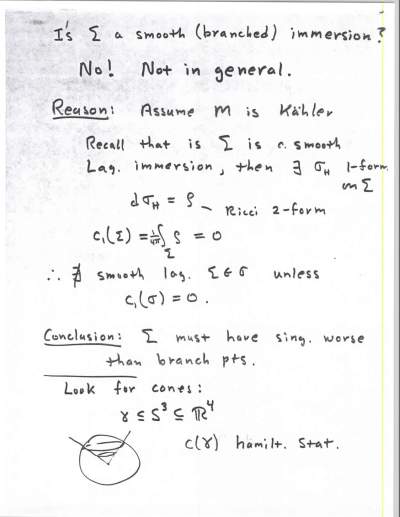 Is Σ a smooth (branched) immersion?
No! Not in general.
Reason: Assume M is Kähler
Recall that is Σ is a smooth
Lag. immersion, then ∃ σ_H 1-form
on Σ
dσ_H = ρ – Ricci 2-form
c₁(Σ) = 1/2π ∫_Σ ρ = 0
∴ ∄ smooth lag. Σ ∈ σ unless
c₁(σ) = 0.
Conclusion: Σ must have sing. worse
than branch pts.
Look for cones:
γ ⊆ S³ ⊆ ℝ⁴
C(γ) hamilt. stat.